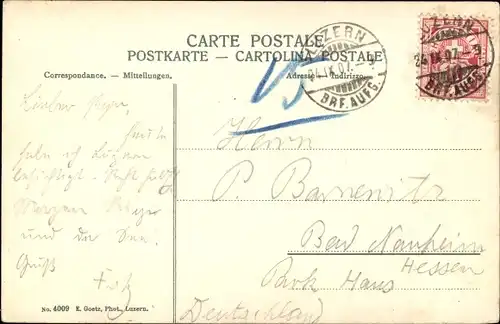 CARTE POSTALE
POSTKARTE — CARTOLINA POSTALE
Correspondance. — Mittellungen.
Adresse — Indirizzo.
LUZERN
24.IX.07.–9
BRF.AUFG.
LUZERN
24.IX.07.–9
BRF.AUFG.
Lieber
Heute
habe ich Luzern
besichtigt.
Morgen
und der See.
Gruß
Herrn
P. Barnewitz
Bad Nauheim
Hessen
Park Haus
Deutschland
No. 4009 E. Goetz, Phot., Luzern.